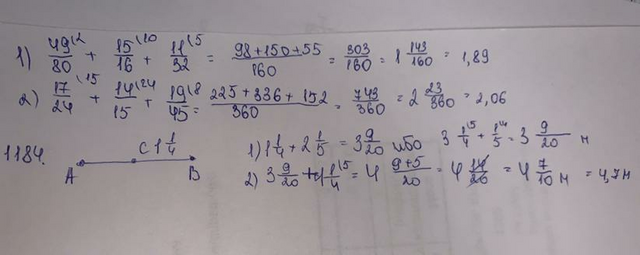 1) 49/80 \2 + 15/16 \10 + 11/32 \5 = 98+150+55/160 = 303/160 = 1 143/160 = 1,89
2) 17/24 \15 + 14/15 \24 + 19/45 \8 = 225+336+152/360 = 743/360 = 2 23/360 = 2,06
1184. A C 1 1/4 B
1) 1 1/4 + 2 1/5 = 3 9/20 або 3 1/4 \5 + 1/5 \4 = 3 9/20 м
2) 3 9/20 + 1 1/4 \5 = 4 9+5/20 = 4 14/20 = 4 7/10 м = 4,7 м